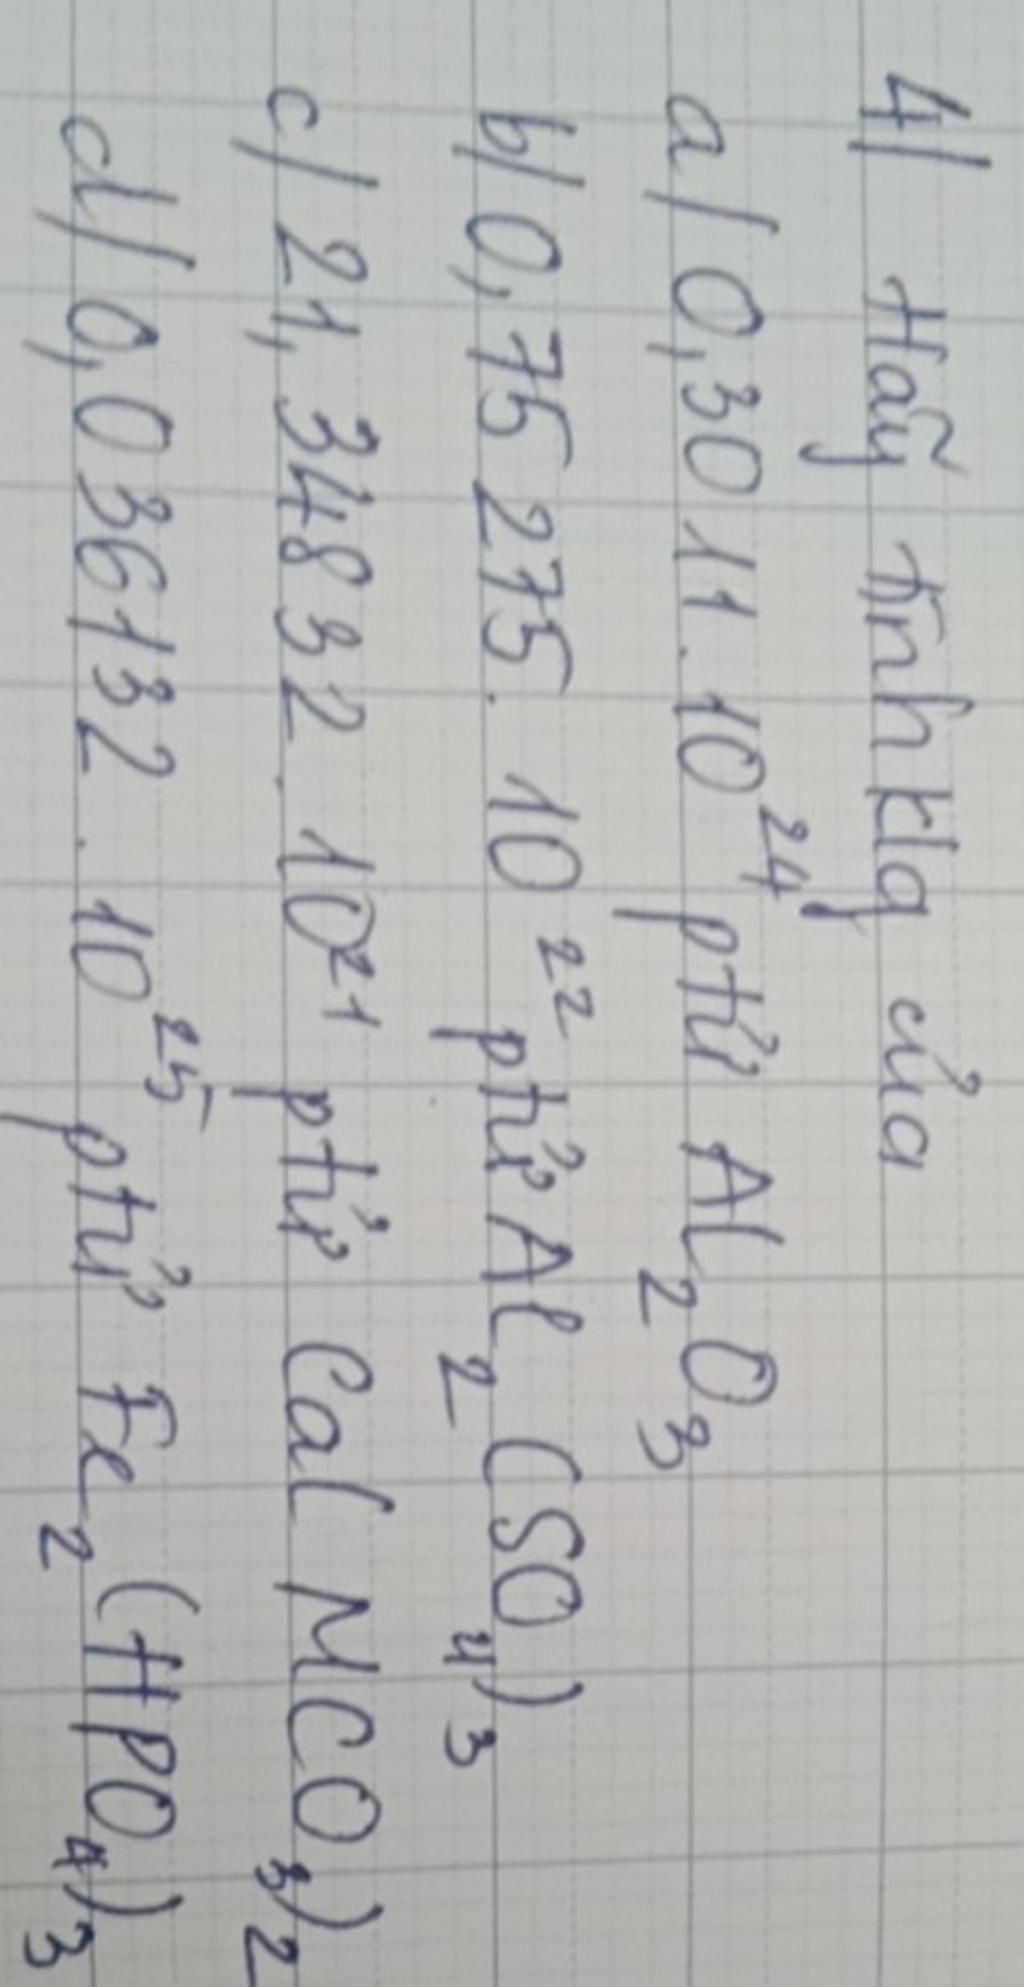 4/ Hãy tính klg của
a/ 0,3011.10²⁴ ptử Al₂O₃
b/ 0,75275.10²² ptử Al₂(SO₄)₃
c/ 21,34832.10²¹ ptử Ca(HCO₃)₂
d/ 0,036132.10²⁵ ptử Fe₂(HPO₄)₃